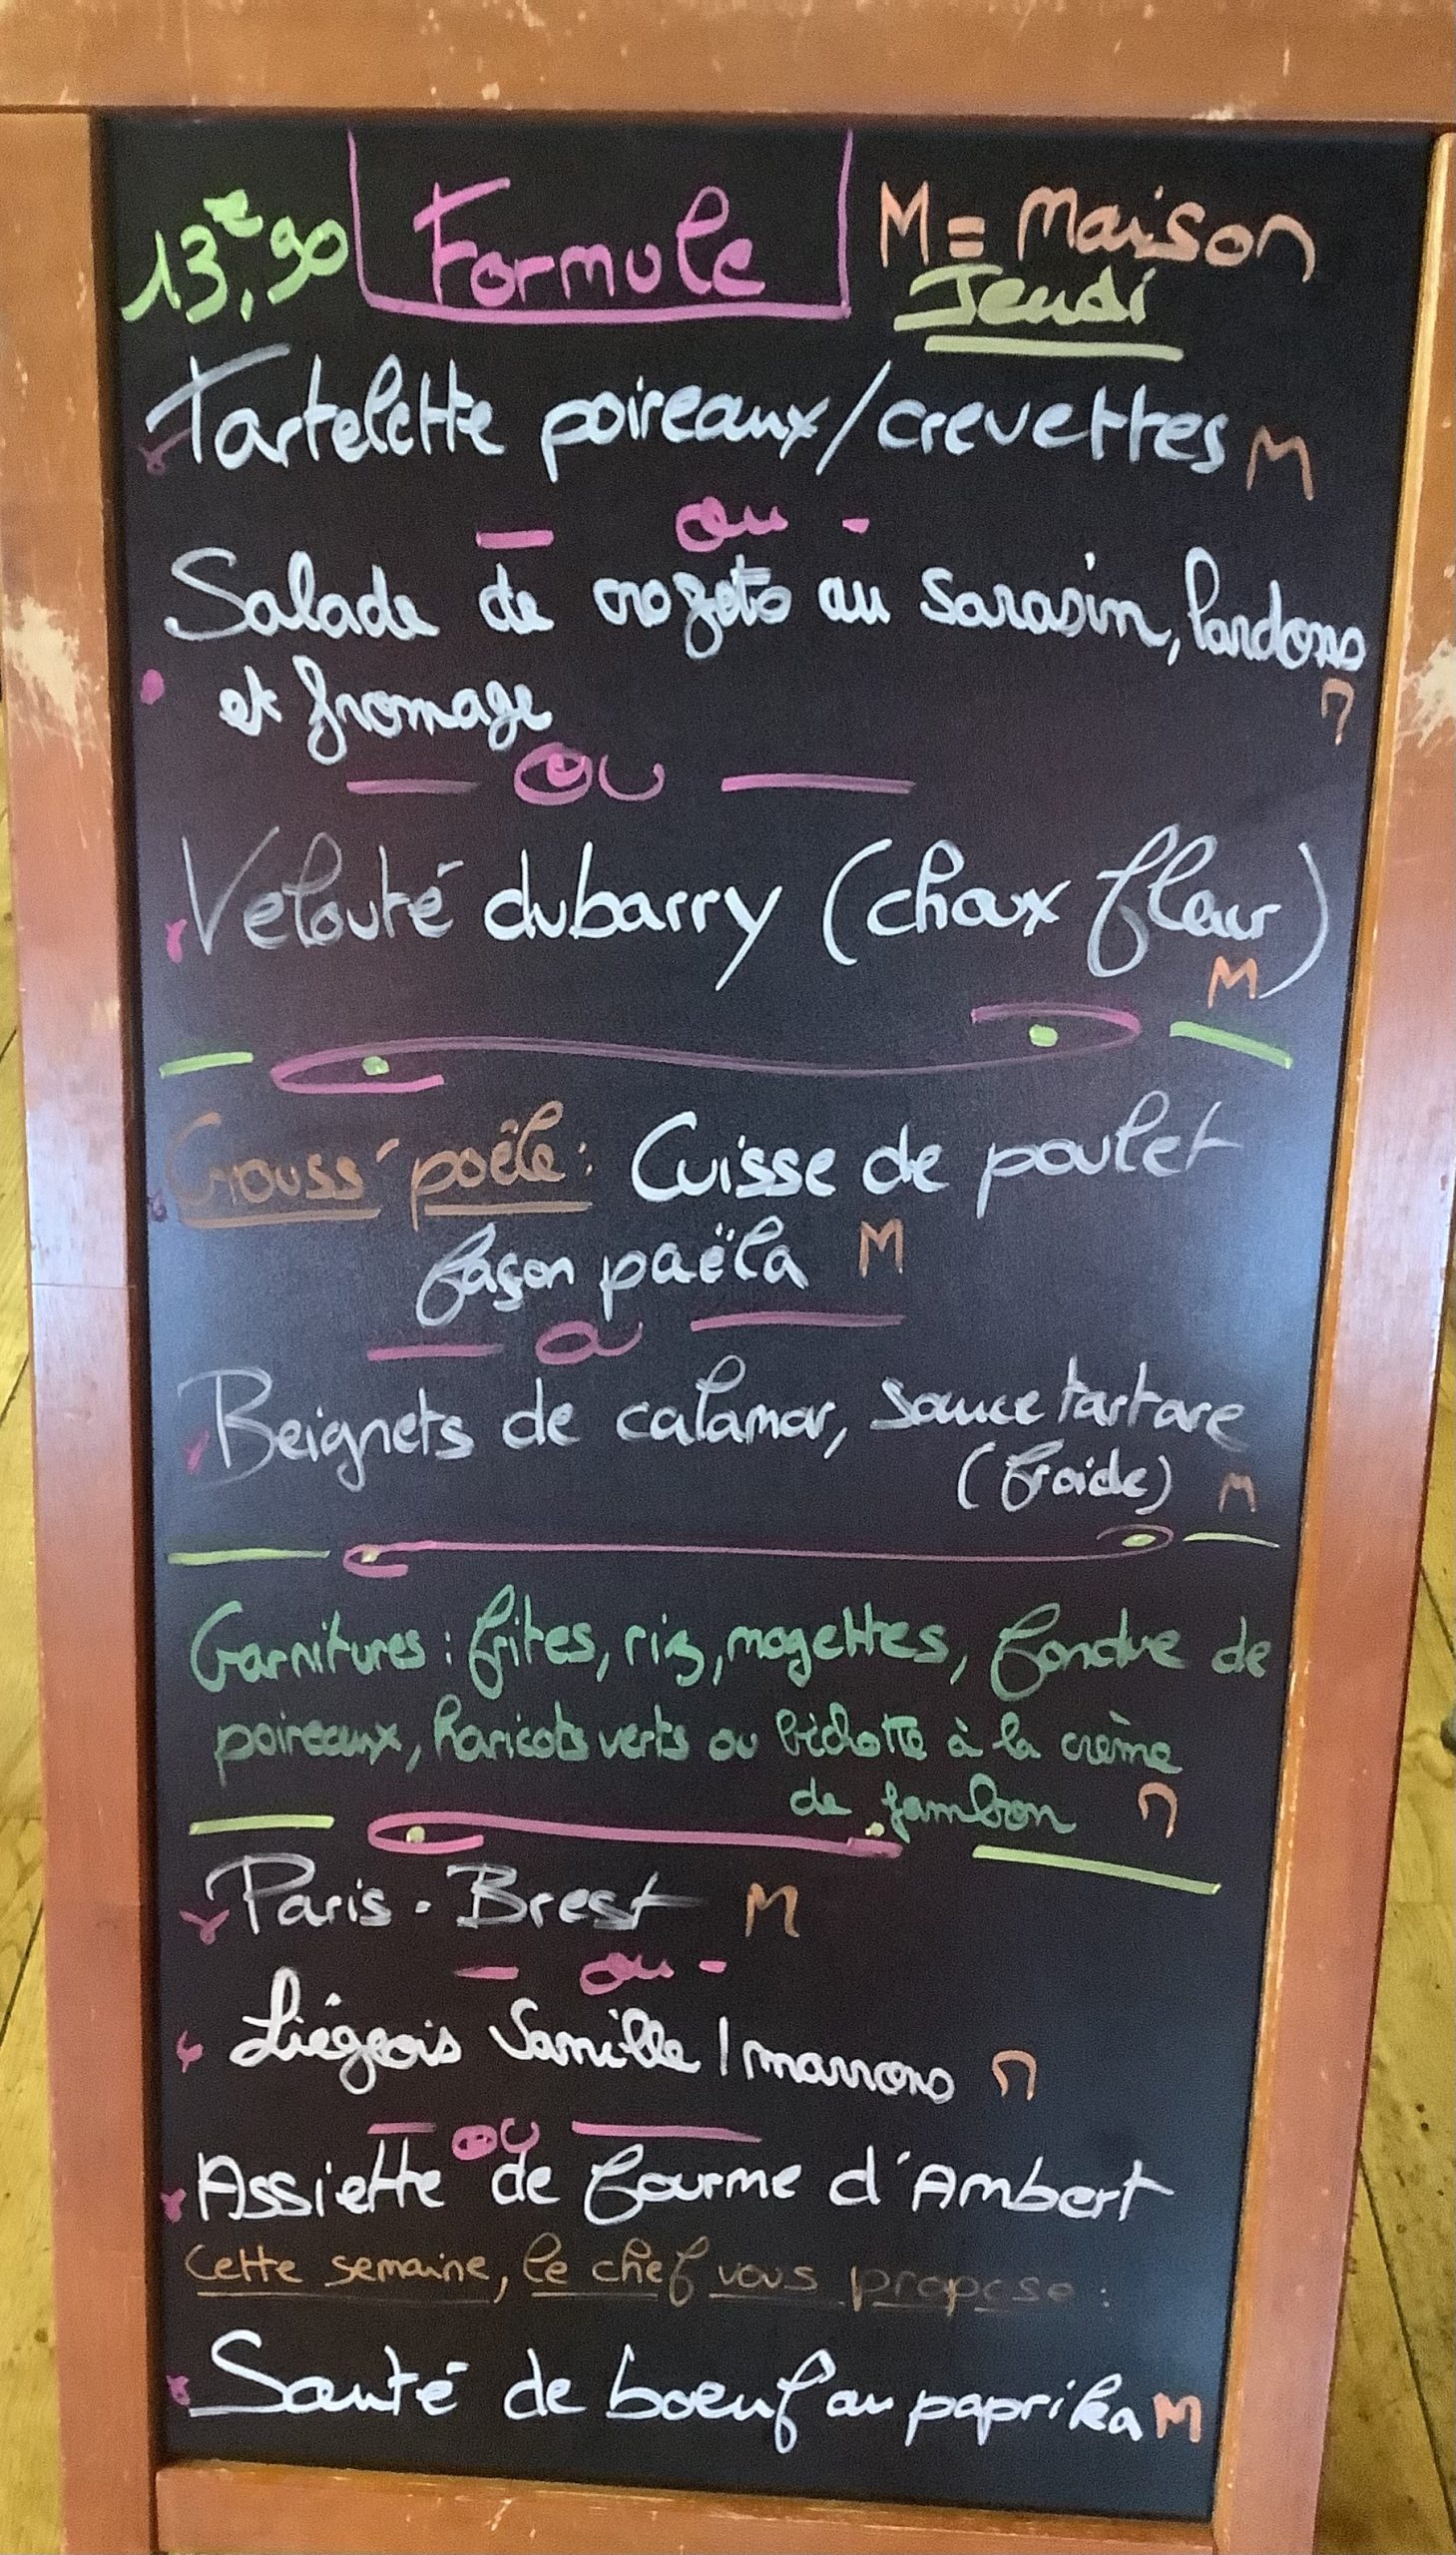 13,€90 Formule M = Maison
Jeudi
Tartelette poireaux/crevettes M
- ou -
Salade de crozets au sarasin, lardons
et fromage M
- ou -
Velouté dubarry (choux fleur)
M
Crouss' poêle : Cuisse de poulet
façon paëla M
Beignets de calamar, sauce tartare
(froide) M
Garnitures : frites, riz, mogettes, fondue de
poireaux, haricots verts ou à la crème
de jambon M
Paris-Brest M
- ou -
Liégeois Vanille / marrons M
- ou -
Assiette de fourme d'Ambert
Cette semaine, le chef vous propose :
Sauté de boeuf au paprika M